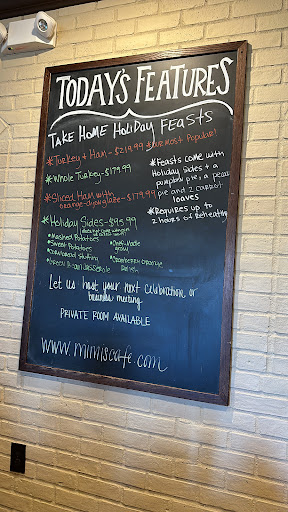 TODAY'S FEATURES
TAKE HOME HOLIDAY FEASTS
*Turkey & Ham - $219.99 *our Most Popular!
*Whole Turkey - $179.99
*Sliced Ham with
orange-dijon glaze - $179.99
*Holiday Sides - $95.99
*Mashed Potatoes
*Sweet Potatoes
*Cornbread Stuffing
*Green Bean Casserole
*Giblet gravy
*Cranberry orange
Relish
*Feasts come with
Holiday Sides + a
pumpkin pie, a pecan
pie and 2 carrot
loaves
*Requires up to
2 hours of Reheating
Let us host your next celebration or
business meeting
PRIVATE ROOM AVAILABLE
www.mimiscafe.com